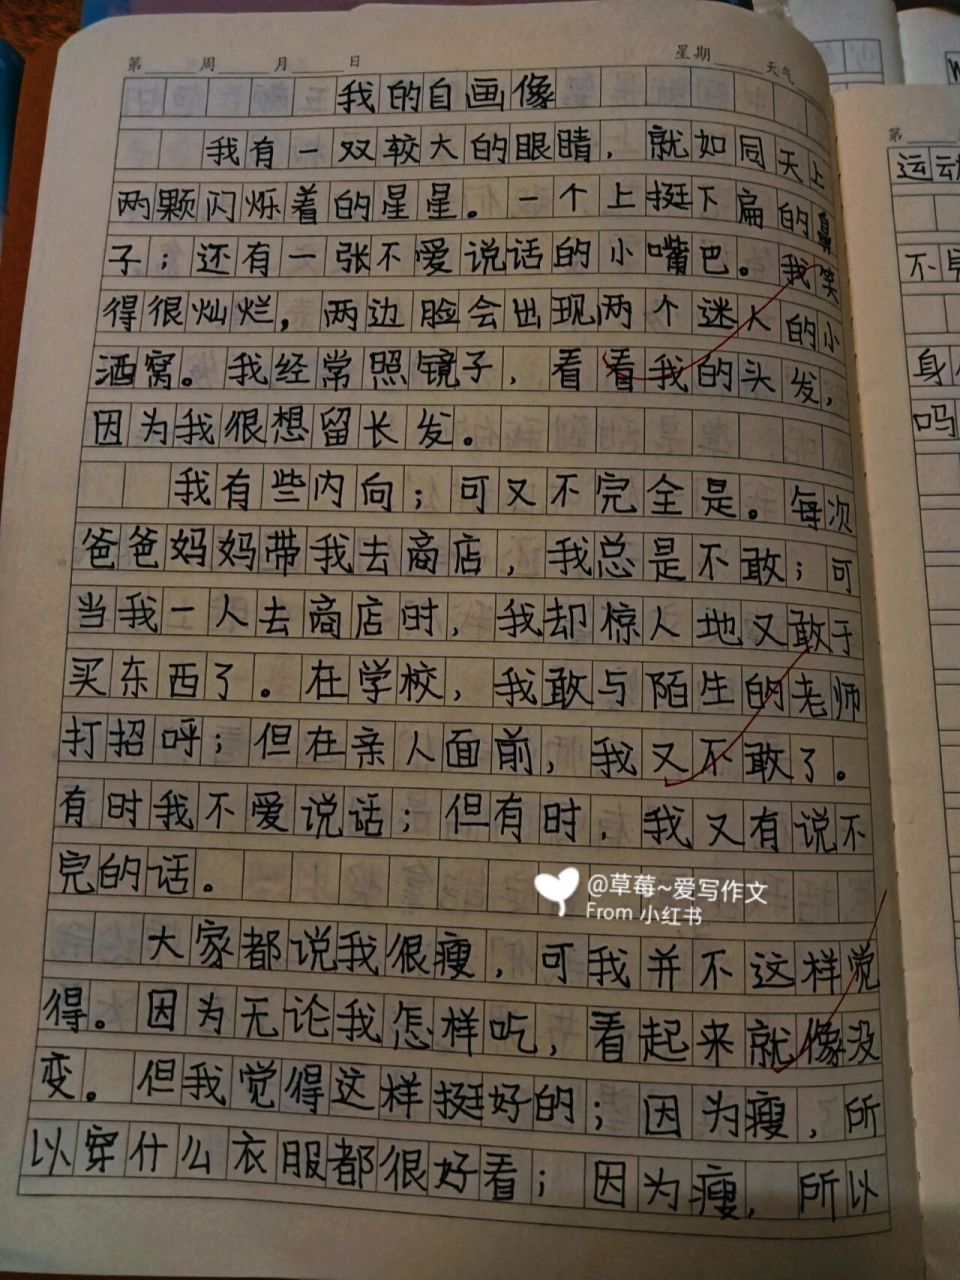 第 周 月 日 星期 天气
我的自画像
我有一双较大的眼睛，就如同天上
两颗闪烁着的星星。一个上挺下扁的鼻
子；还有一张不爱说话的小嘴巴。我笑
得很灿烂，两边脸会出现两个迷人的小
酒窝。我经常照镜子，看看我的头发，
因为我很想留长发。
我有些内向；可又不完全是。每次
爸爸妈妈带我去商店，我总是不敢；可
当我一人去商店时，我却惊人地又敢于
买东西了。在学校，我敢与陌生的老师
打招呼；但在亲人面前，我又不敢了。
有时我不爱说话；但有时，我又有说不
完的话。
@草莓~爱写作文
From 小红书
大家都说我很瘦，可我并不这样觉
得。因为无论我怎样吃，看起来就像没
变。但我觉得这样挺好的；因为瘦，所
以穿什么衣服都很好看；因为瘦，所以
第
运动
不
身
吗